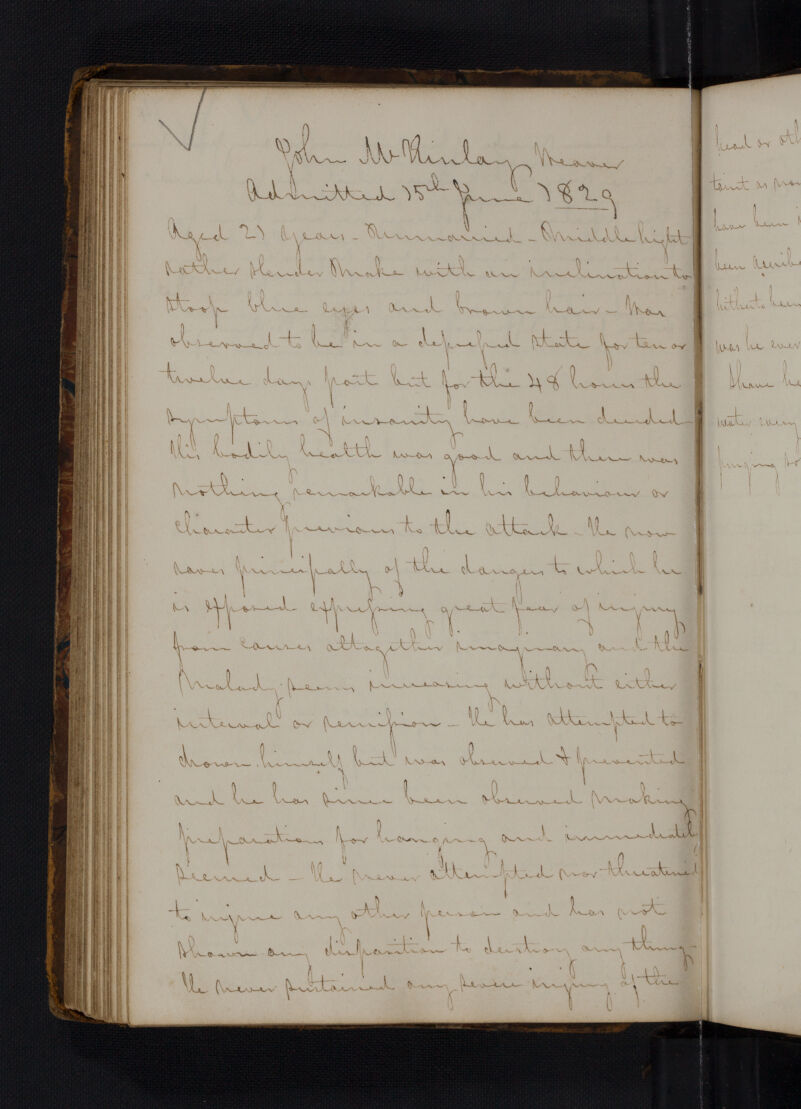 John McKinlay Weaver
Admitted 15th June 1829
Aged 21 years - Unmarried - Middle hight
rather slender Make with an inclination to
stoop blue eyes and brown hair - Was
observed to be in a depressed state for ten or
twelve days past but for the 48 hours the
symptoms of insanity have been decided
His bodily health was good and there was
nothing remarkable in his behaviour or
character previous to the attack - He now
raves principally of the dangers to which he
is exposed expressing great fear of injury
from causes altogether imaginary and the
Malady seems increasing without either
interval or remission - He has attempted to
drown himself but was observed & prevented
and he has since been observed making
preparations for hanging and immediately
secured - He never attempted nor threatened
to injure any other person and has not
shown any disposition to destroy any thing -
He never sustained any severe injury of the
head or oth
taint as
have been
been
hitherto been
was he ever
Have he
water every
purging